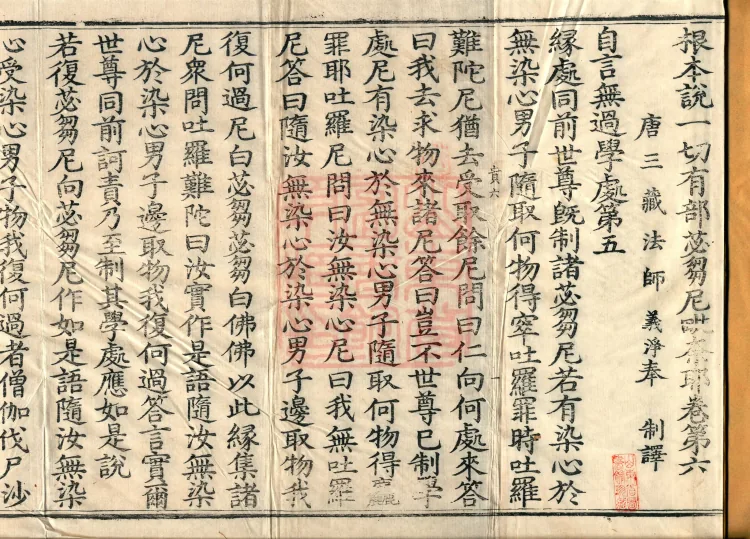 根本說一切有部苾芻尼毗奈耶卷第六
唐三藏法師義淨奉 制譯
自言無過學處第五
緣處同前世尊旣制諸苾芻尼若有染心於
無染心男子隨取何物得窣吐羅罪時吐羅
難陀尼猶去受取餘尼問曰仁向何處來答
曰我去求物來諸尼答曰豈不世尊已制學
處尼有染心於無染心男子隨取何物得麁
罪耶吐羅尼問曰汝無染心尼曰我無吐羅
尼答曰隨汝無染心於染心男子邊取物我
復何過尼白苾芻苾芻白佛佛以此緣集諸
尼衆問吐羅難陀曰汝實作是語隨汝無染
心於染心男子邊取物我復何過答言實爾
世尊同前訶責乃至制其學處應如是說
若復苾芻尼向苾芻尼作如是語隨汝無染
心受染心男子物我復何過者僧伽伐尸沙